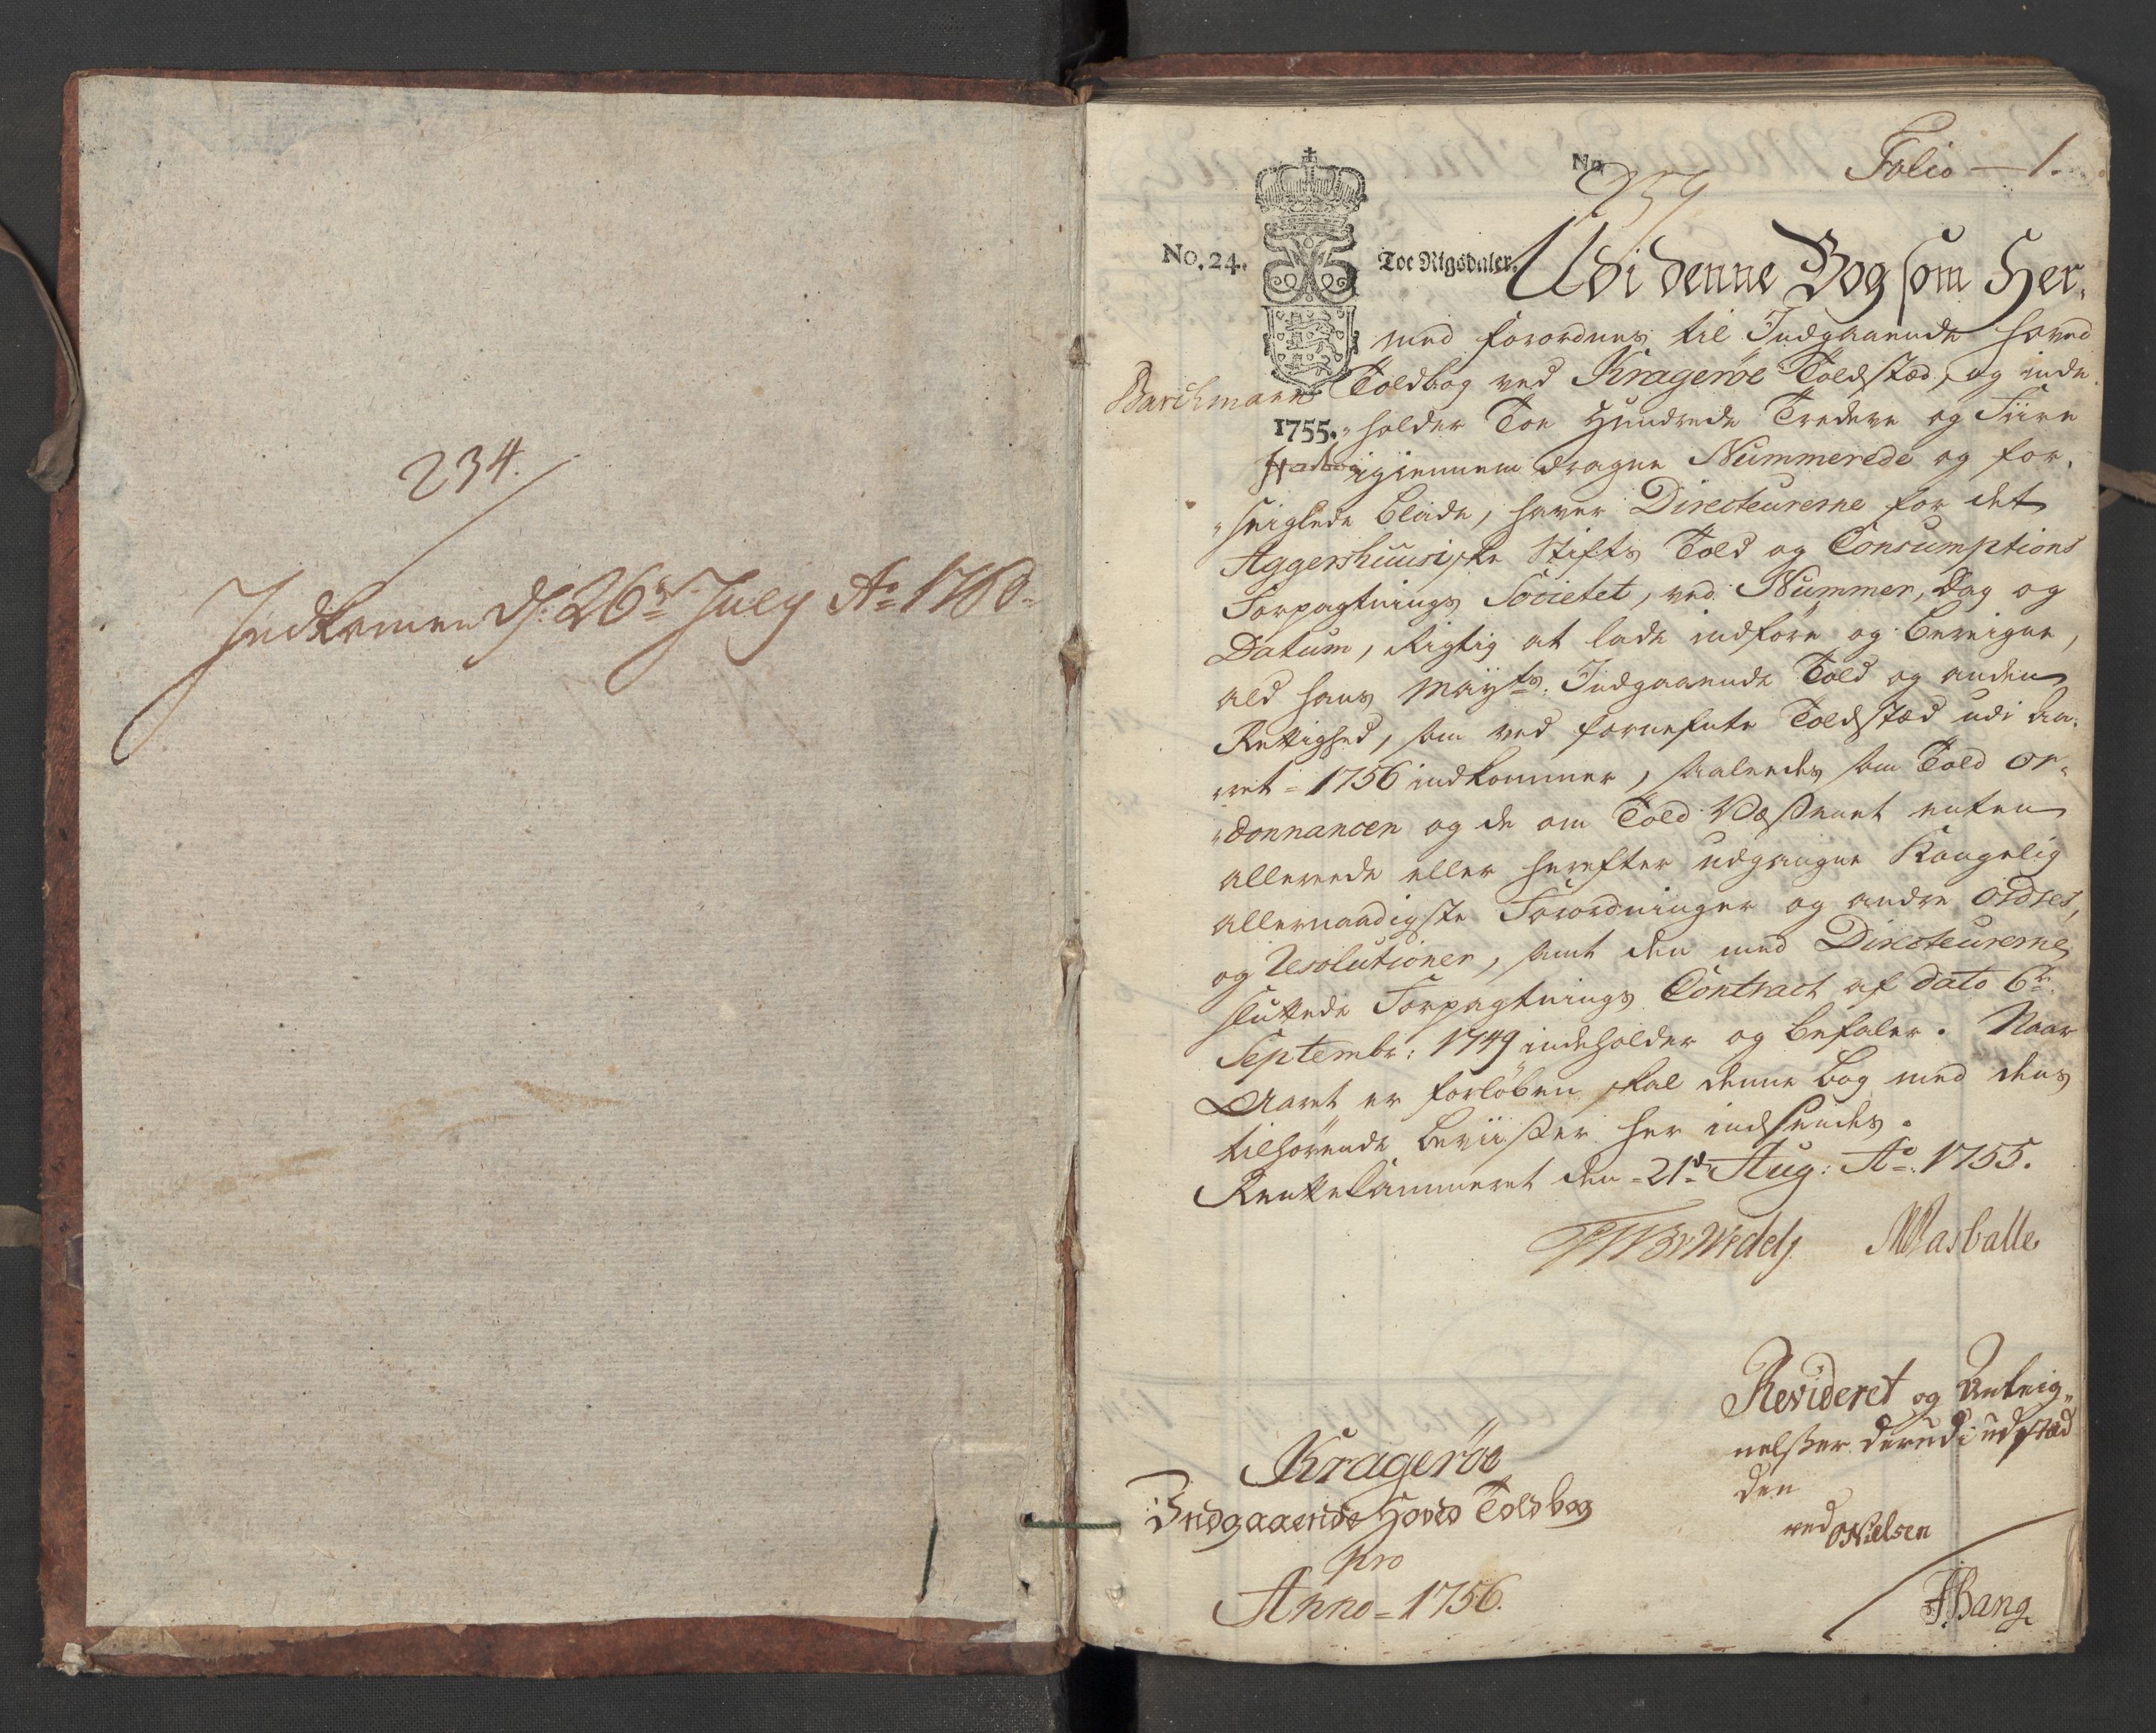 234.
Indkommen d: 26de July Ao 1760
Folio — 1.
No
No. 24.
Toe Rigsdaler.
Udi denne Bog som Her-
med forordnes til Indgaaende Hoved
Toldbog ved Kragerøe Toldstæd, og inde
Barchmann
1755.
holder Toe Hundrede Tredeve og Fiire
igiennem dragne Nummerede og for-
seiglede blade, haver Directeurerne for det
Aggershuusiske Stifts Told og Consumptions
Forpagtnings Societet, ved Nummer, Dag og
Datum, Rigtig at lade indføre og bereigne,
ald hans Mayts: Indgaaende Told og anden
Rettighed, som ved fornefnte Toldstæd udi Aa-
ret = 1756 indkommer, saaleedes som Told Or-
donnancen og de om Told Væsenet enten
allereede eller herefter udgangne Kongelig
allernaadigste Forordninger og andre Ordres,
og Resolutioner, samt den med Directeurerne
sluttede Forpagtnings Contract af dato 6te
Septembr: 1749 indeholder og befaler. Naar
Aaret er forløben skal denne bog med dens
tilhørende beviiser her indsendes.
Renttekammeret den = 21de Aug: Ao: 1755.
Wedel Masballe
Revideret og Anteig-
nelser derudi udstæd
den
ved ONielsen
FBang
Kragerøe
Indgaaende Hoved Toldbog
pro
Anno = 1756.